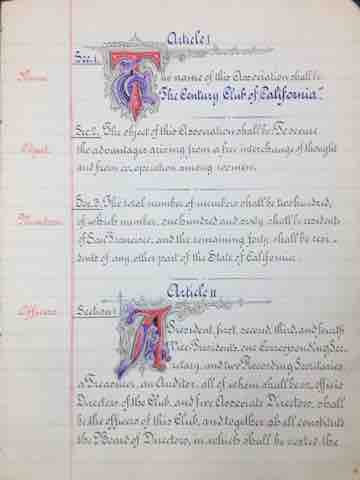 Article I
Name. Sec. 1. The name of this Association shall be
"The Century Club of California".
Object. Sec. 2. The object of this Association shall be: To secure
the advantages arising from a free interchange of thought
and from co-operation among women.
Members. Sec. 3. The total number of members shall be two hundred,
of which number, one hundred and sixty, shall be residents
of San Francisco, and the remaining forty, shall be resi-
dents of any other part of the State of California.
Article II
Officers. Section 1. A President, first, second, third, and fourth
Vice-Presidents, one Corresponding Sec-
retary, and two Recording Secretaries
a Treasurer, an Auditor, all of whom shall be ex-officio
Directors of the Club, and five Associate Directors, shall
be the officers of this Club, and together shall constitute
the Board of Directors, in which shall be vested the